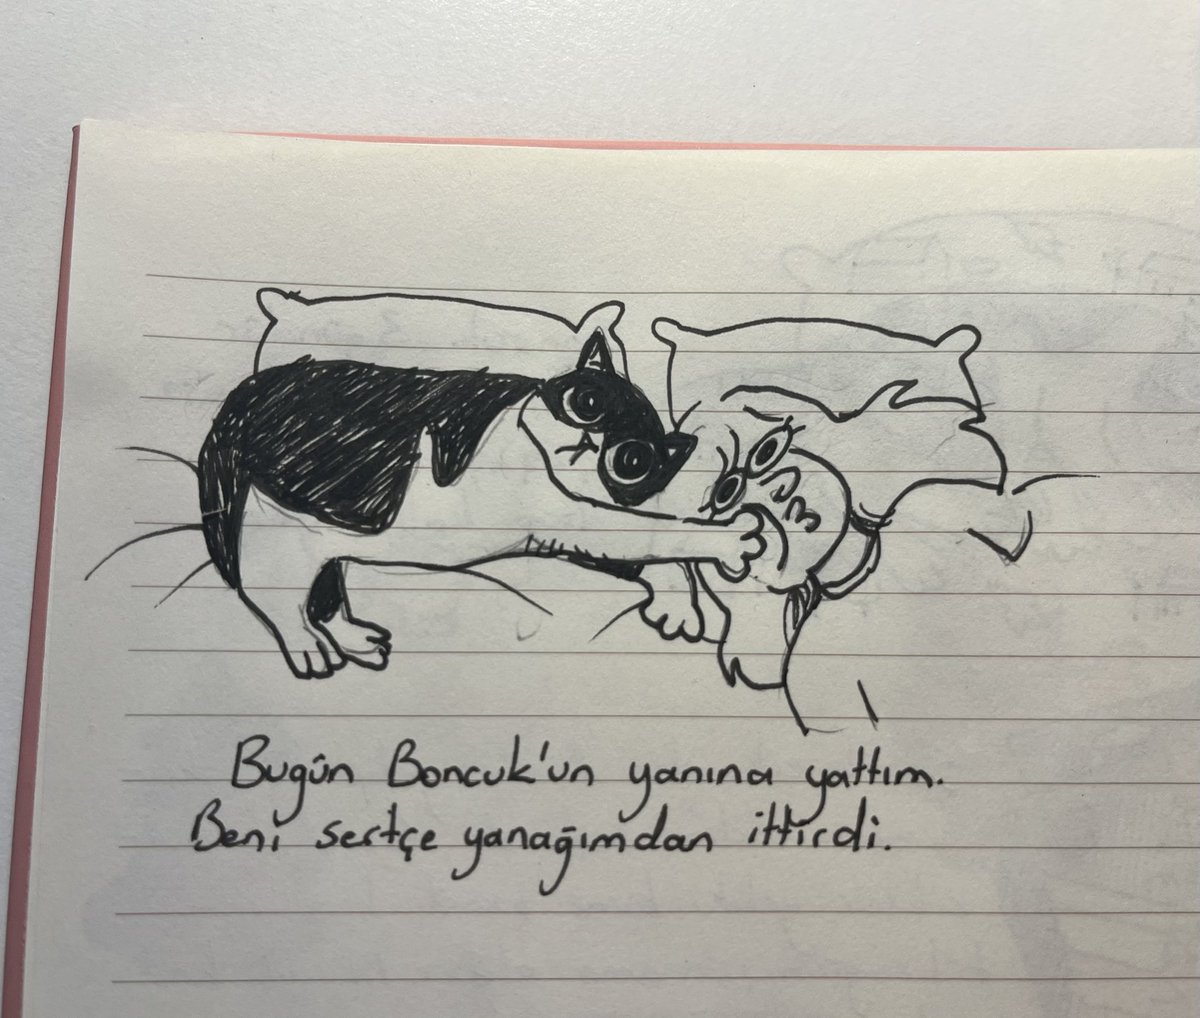 Bugün Boncuk'un yanına yattım.
Beni sertçe yanağımdan ittirdi.